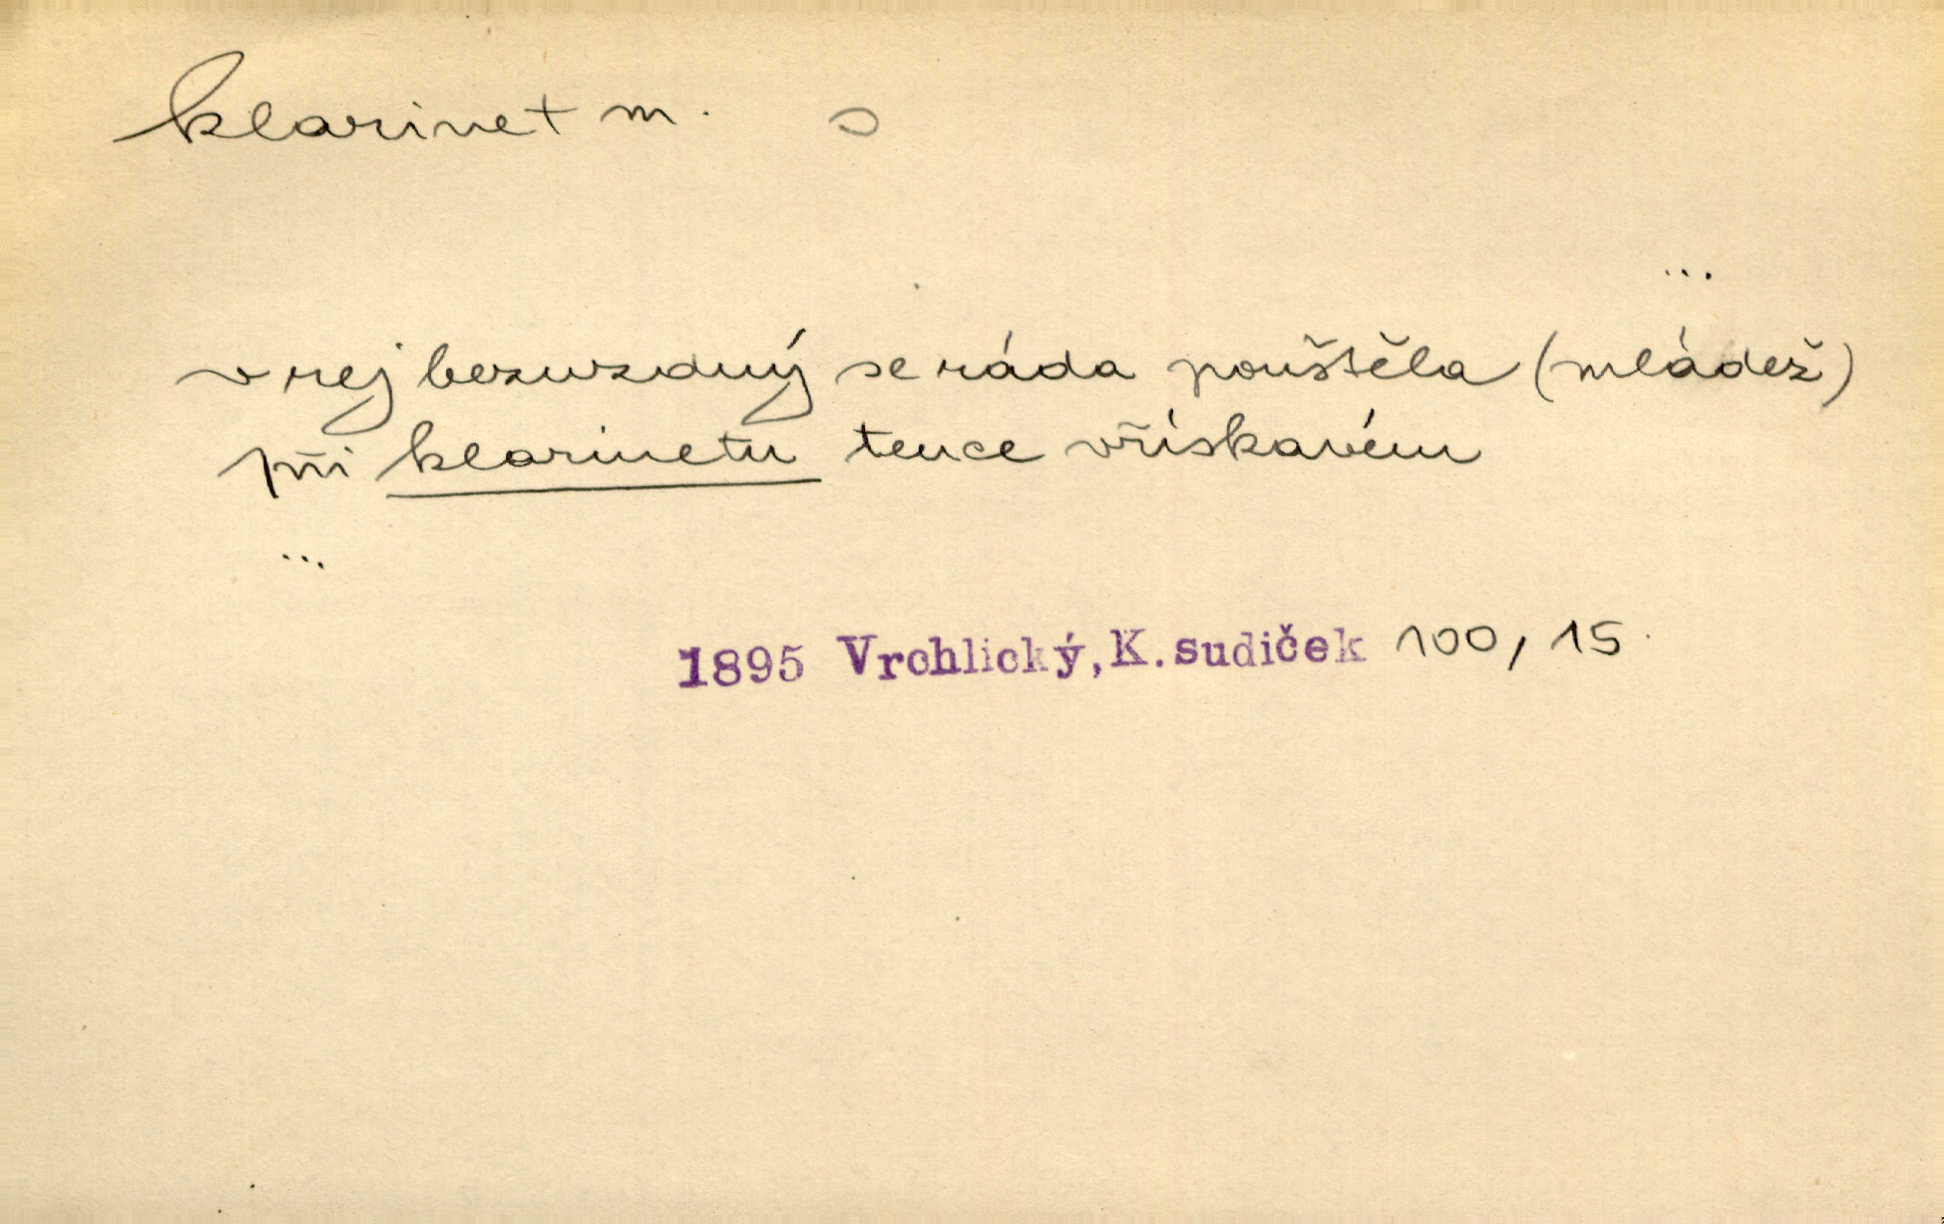 klarinet m.
...
v rej bezuzdný se ráda pouštěla (mládež)
při klarinetu tence vřískavém
...
1895 Vrchlický, K. sudiček 100, 15